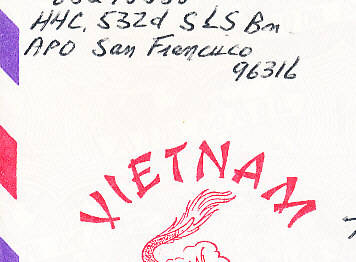 HHC, 532d S&S Bn
APO San Francisco
96316
VIETNAM